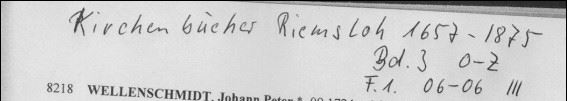 Kirchenbücher Riemsloh 1657-1875
Bd. 3 O-Z
F.1. 06-06 III
8218 WELLENSCHMIDT, Johann Peter *